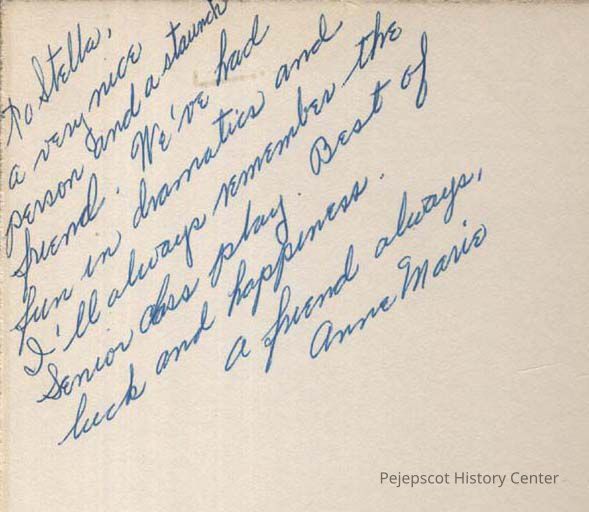 To Stella,
a very nice
person and a staunch
friend. We've had
fun in dramatics and
I'll always remember the
Senior class play. Best of
luck and happiness.
a friend always,
Anne Marie
Pejepscot History Center